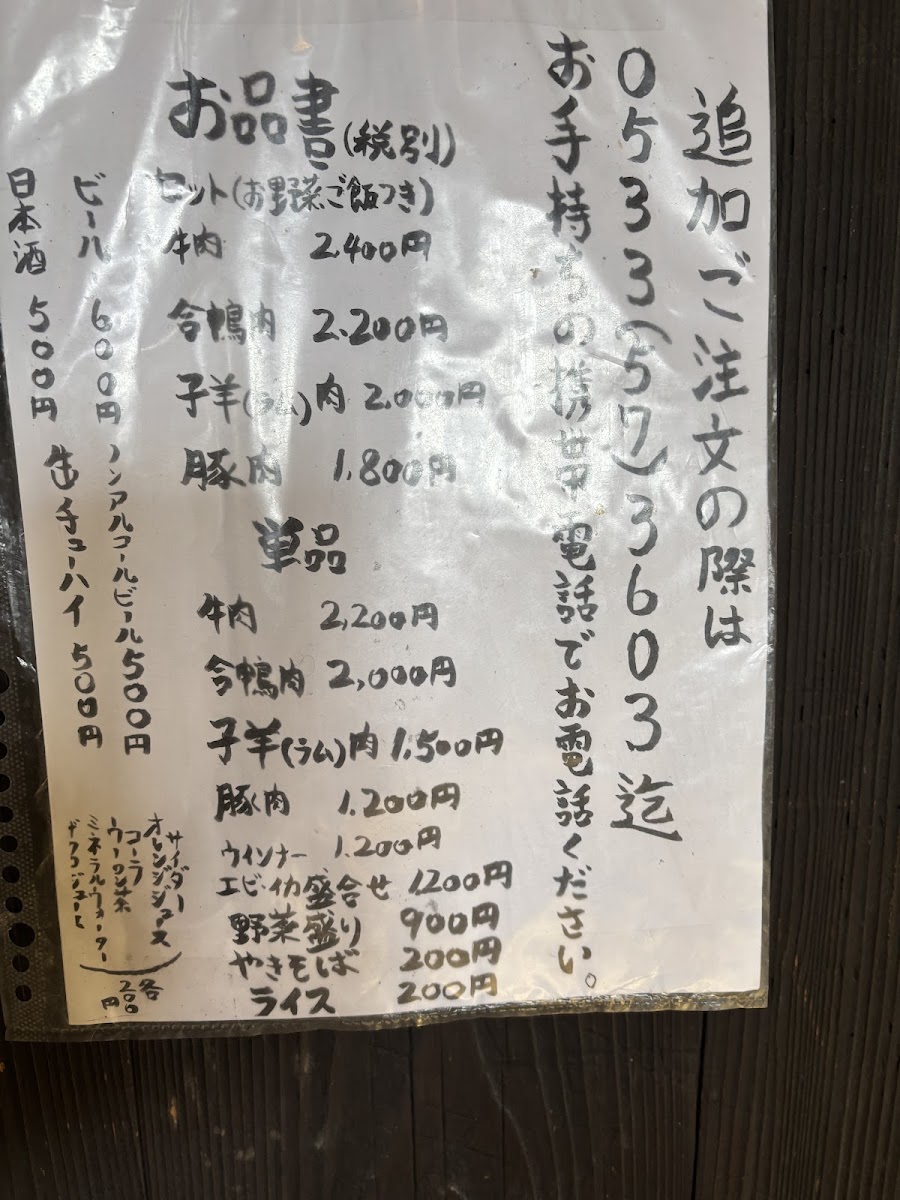 追加ご注文の際は
0533(57)3603迄
お手持ちの携帯電話でお電話ください。
お品書(税別)
セット(お野菜ご飯つき)
牛肉 2.400円
合鴨肉 2.200円
子羊(ラム)肉 2,000円
豚肉 1.800円
単品
牛肉 2,200円
合鴨肉 2,000円
子羊(ラム)肉 1.500円
豚肉 1.200円
ウインナー 1.200円
エビ・イカ盛合せ 1200円
野菜盛り 900円
やきそば 200円
ライス 200円
ビール 600円
ノンアルコールビール 500円
日本酒 500円
生チューハイ 500円
サイダー
オレンジジュース
コーラ
ウーロン茶
ミネラルウォーター
各200円